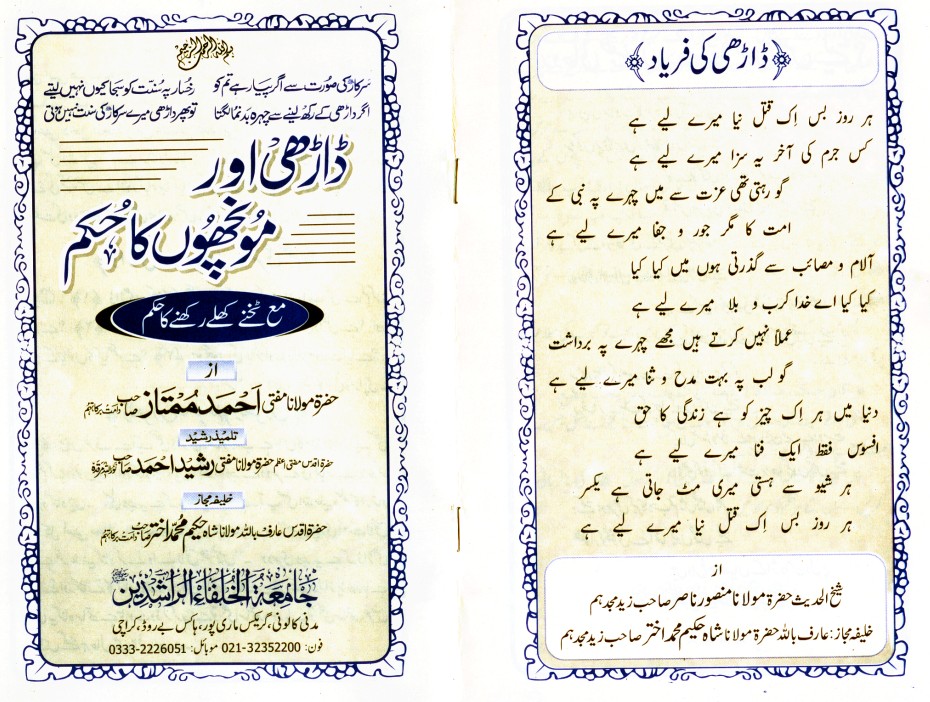 بسم اللہ الرحمن الرحیم
سرکارؐ کی صورت سے اگر پیار ہے تم کو رخسار پہ سنت کو سجا کیوں نہیں لیتے
اگر داڑھی کے رکھ لینے سے چہرہ بدنما لگتا تو پھر داڑھی میرے سرکارؐ کی سنت نہیں ہوتی
ڈاڑھی اور
مونچھوں کا حُکم
مع ٹخنے کھلے رکھنے کا حکم
از
حضرۃ مولانا مفتی احمد ممتاز صاحب دامت برکاتہم
تلمیذ رشید
حضرۃ اقدس مفتی اعظم حضرۃ مولانا مفتی رشید احمد صاحب
خلیفہ مجاز
حضرۃ اقدس عارف باللہ مولانا شاہ حکیم محمد اختر صاحب دامت برکاتہم
جامعۃ الخلفاء الراشدین
مدنی کالونی، گریکس ماری پور، ہاکس بے روڈ، کراچی
فون: 021-32352200 موبائل: 0333-2226051
ڈاڑھی کی فریاد
ہر روز بس اِک قتل نیا میرے لیے ہے
کس جرم کی آخر یہ سزا میرے لیے ہے
گو رہتی تھی عزت سے میں چہرے پہ نبی کے
امت کا مگر جور و جفا میرے لیے ہے
آلام و مصائب سے گذرتی ہوں میں کیا کیا
کیا کیا اے خدا کرب و بلا میرے لیے ہے
عملاً نہیں کرتے ہیں مجھے چہرے پہ برداشت
گو لب پہ بہت مدح و ثنا میرے لیے ہے
دنیا میں ہر اِک چیز کو ہے زندگی کا حق
افسوس فقط ایک فنا میرے لیے ہے
ہر شیو سے ہستی میری مٹ جاتی ہے یکسر
ہر روز بس اِک قتل نیا میرے لیے ہے
از
شیخ الحدیث حضرۃ مولانا منصور ناصر صاحب زید مجدہم
خلیفہ مجاز: عارف باللہ حضرۃ مولانا شاہ حکیم محمد اختر صاحب زید مجدہم